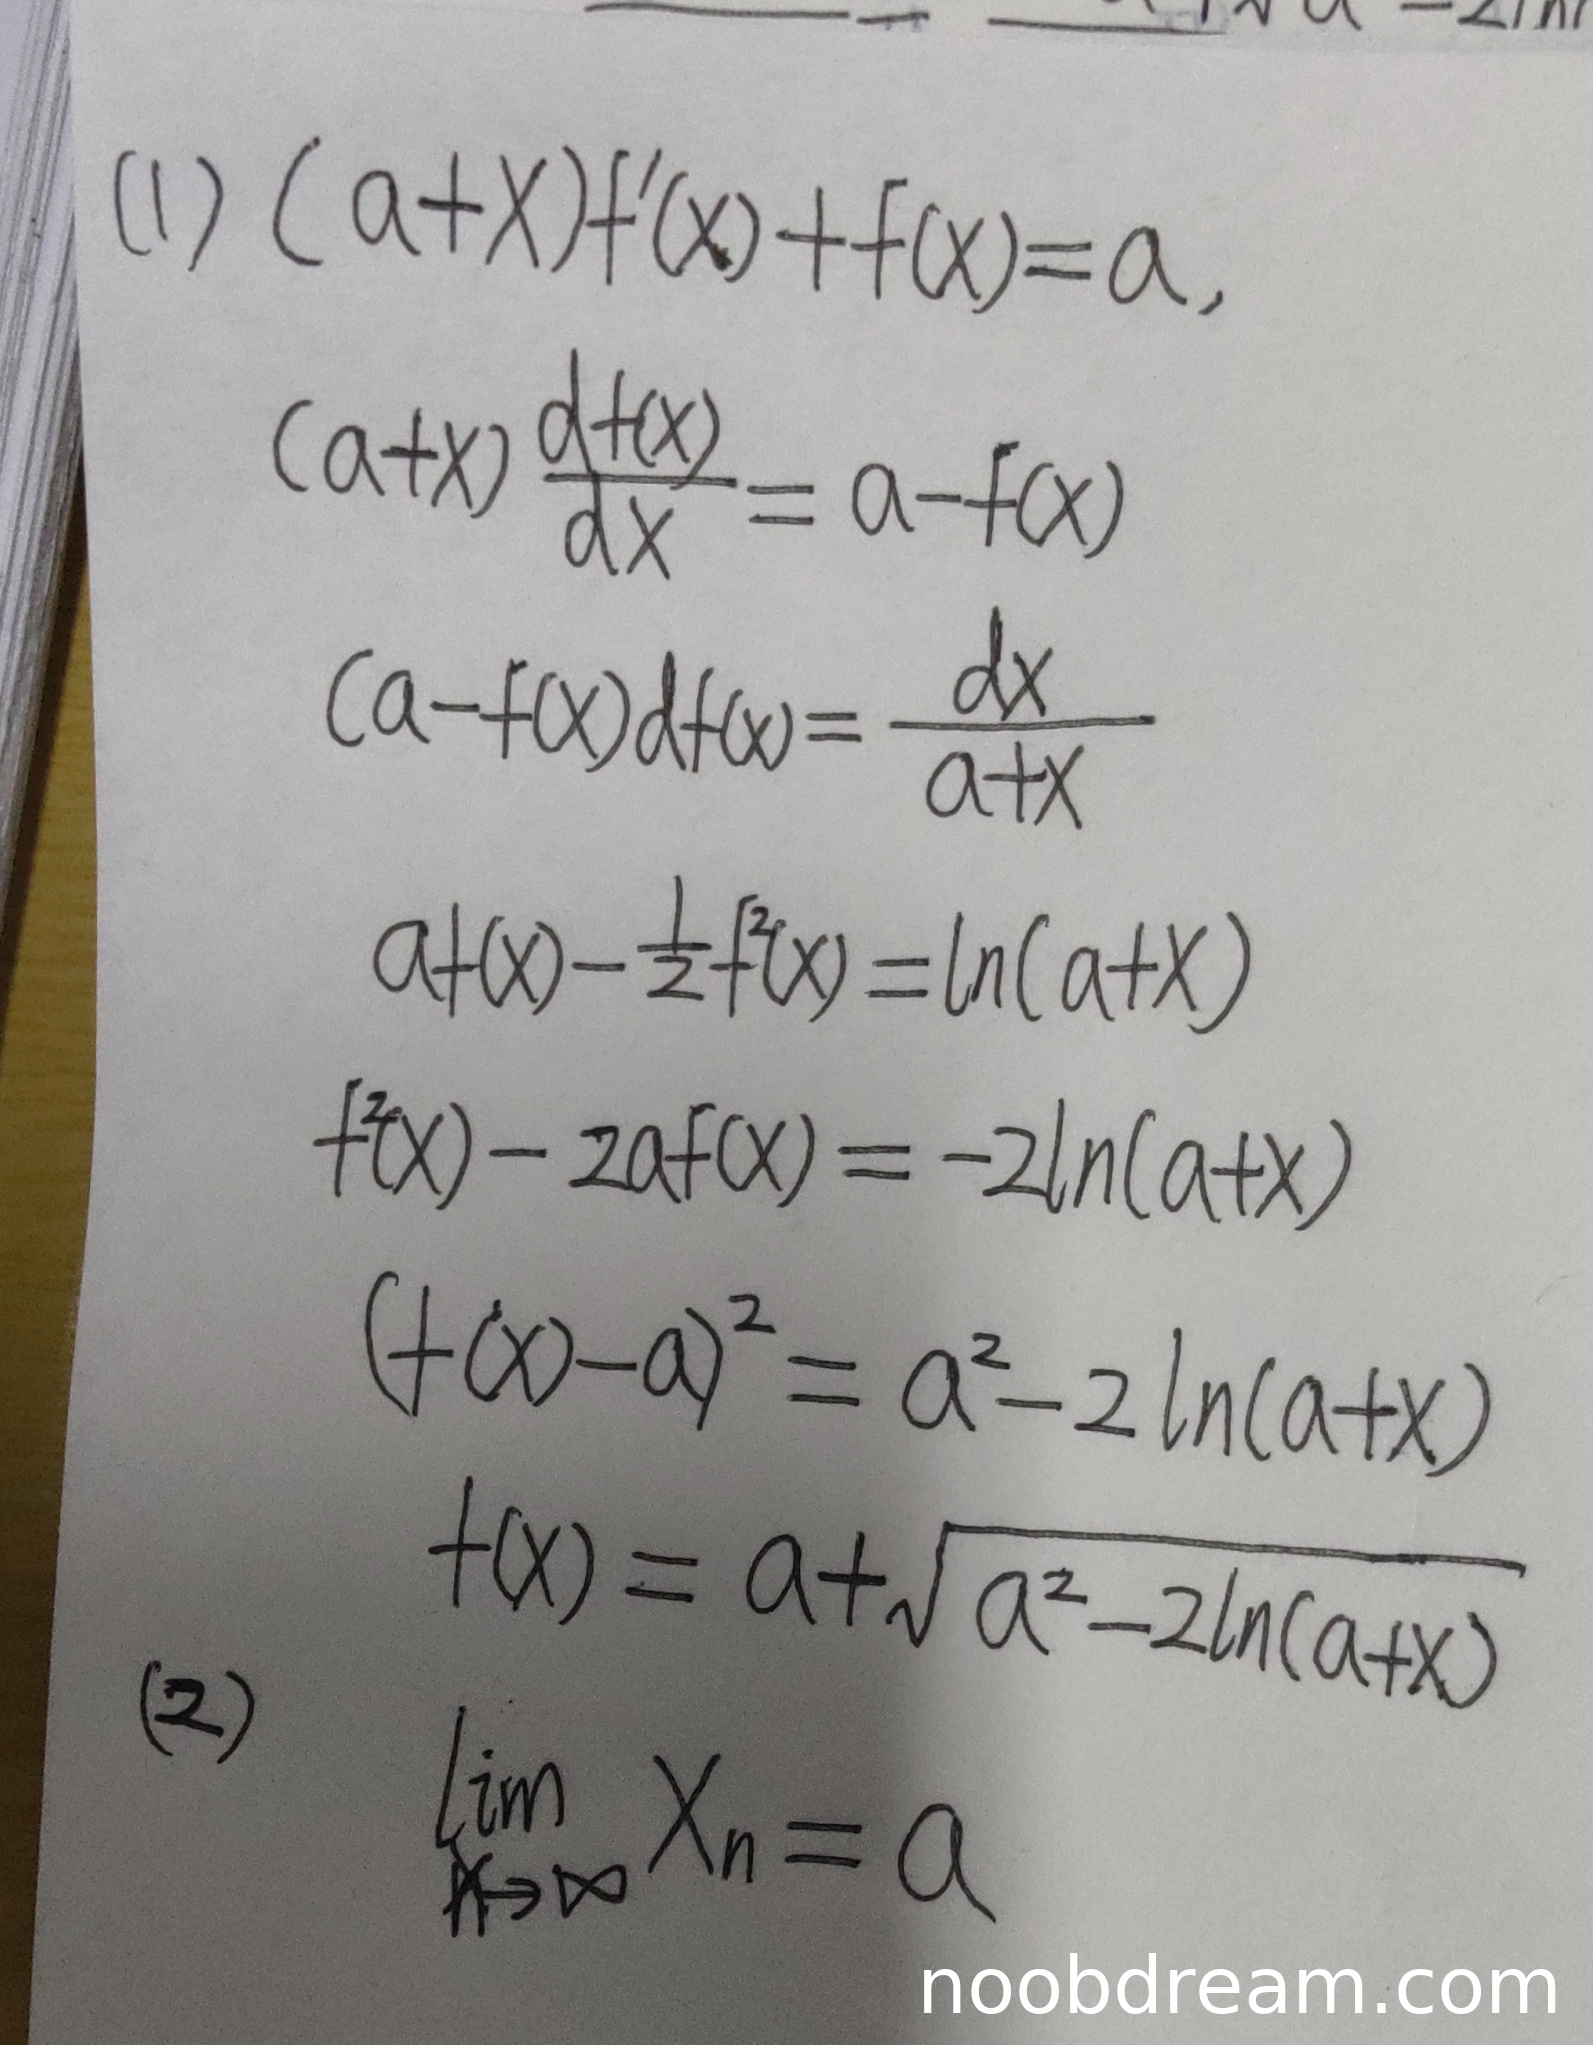 (1) (a+x)f'(x)+f(x)=a,
(a+x) df(x)/dx = a-f(x)
(a-f(x)df(x)= dx/a+x
af(x)-1/2f²(x)=ln(a+x)
f²(x)-2af(x)=-2ln(a+x)
(f(x)-a)²=a²-2ln(a+x)
f(x)=a+√a²-2ln(a+x)
(2)
lim Xn=a
n→∞
noobdream.com